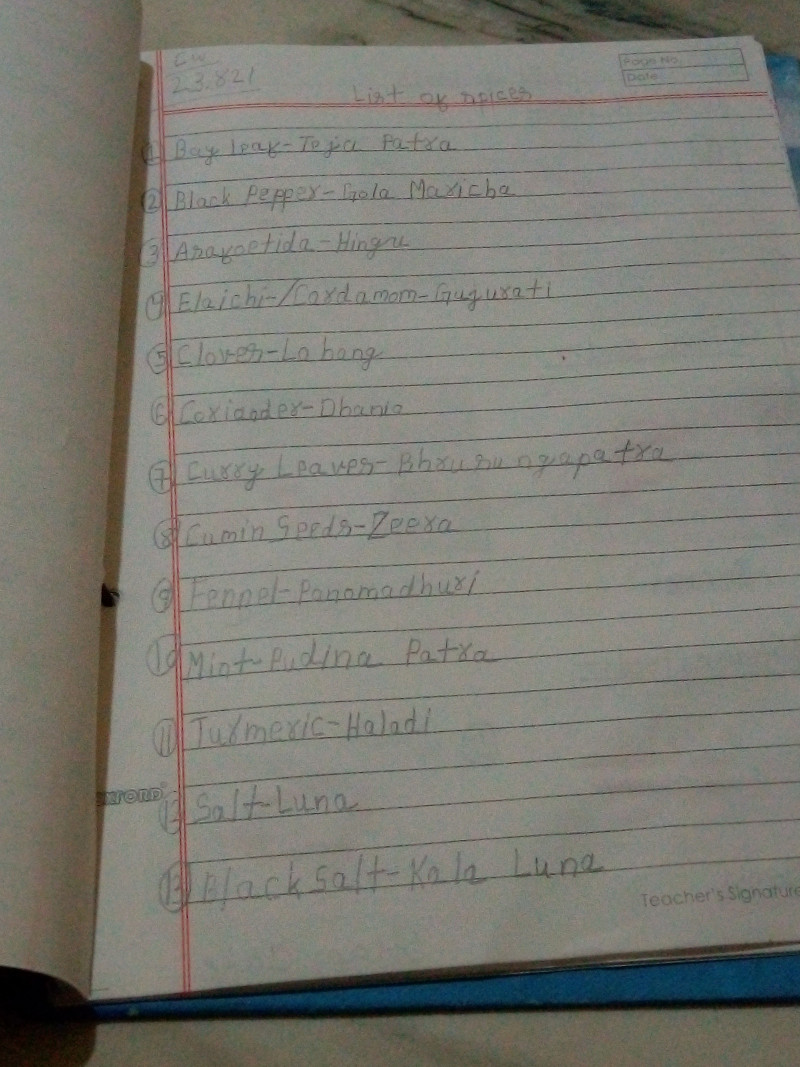 CW
23.8.21
Page No.
Date
List of spices
① Bay leaf-Teja Patra
② Black Pepper-Gola Maricha
③ Asafoetida-Hingu
④ Elaichi-/Cardamom-Gugurati
⑤ Cloves-Labang
⑥ Coriander-Dhania
⑦ Curry Leaves-Bhrusungapatra
⑧ Cumin Seeds-Zeera
⑨ Fennel-Panamadhuri
⑩ Mint-Pudina Patra
⑪ Turmeric-Haladi
⑫ Salt-Luna
⑬ Black Salt-Kala Luna
OXFORD
Teacher's Signature